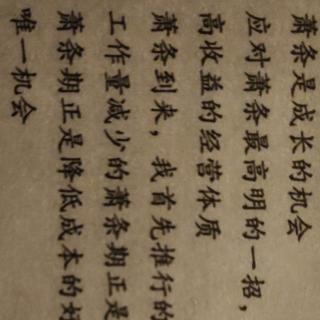 萧条是成长的机会
应对萧条最高明的一招，
高收益的经营体质
萧条到来，我首先推行的
工作量减少的萧条期正是
萧条期正是降低成本的好
唯一机会